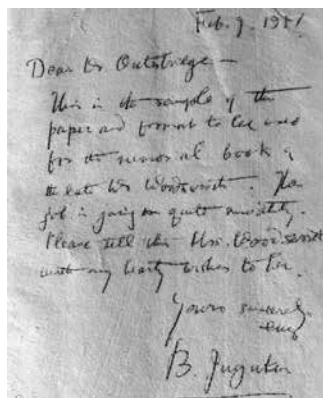 Feb. 9. 1951
Dear Mr Outerbridge —
This is the sample of the
paper and format to be used
for the memorial book of
the late Mr Woodsmith. The
job is going on quite smoothly.
Please tell this Mrs. Woodsmith
with my hearty wishes to her.
Yours sincerely
B.